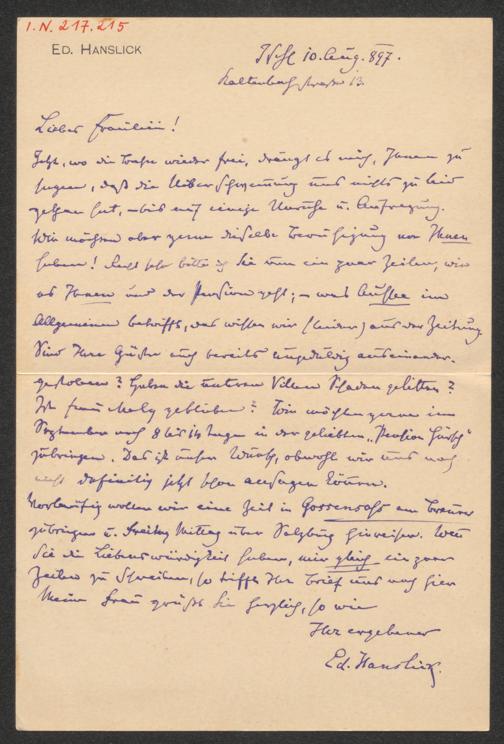 I.N. 217.215
ED. HANSLICK
Ischl 10. Aug. 897.
Kaltenbachstrasse 13.
Liebes Fräulein!
Jetzt, wo die Bahn wieder frei, drängt es mich, Ihnen zu
sagen, daß die Überschwemmung uns nichts zu leid
gethan hat, – bis auf einige Unruhe u. Aufregung.
Wir möchten aber gerne dieselbe Beruhigung von Ihnen
haben! Recht sehr bitte ich Sie um ein paar Zeilen, wie
es Ihnen und der Pension geht; – was Aussee im
Allgemeinen betrifft, das wissen wir (leider) aus der Zeitung.
Sind Ihre Gäste auch bereits ungeduldig auseinander-
gestoben? Haben die unteren Villen Schaden gelitten?
Ist Frau geblieben? Wir möchten gerne im
September noch 8 bis 14 Tage in der geliebten „Pension
zubringen. Das ist unser Wunsch, obwohl wir uns noch
nicht definitiv jetzt schon ansagen können.
Vorläufig wollen wir eine Zeit in Gossensass am Brenner
zubringen u. Freitag Mittag über Salzburg hinreisen. Wenn
Sie die Liebenswürdigkeit haben, mir gleich ein paar
Zeilen zu schreiben, so trifft Ihr Brief uns noch hier.
Meine Frau grüßt Sie herzlich, so wie
Ihr ergebener
Ed. Hanslick.